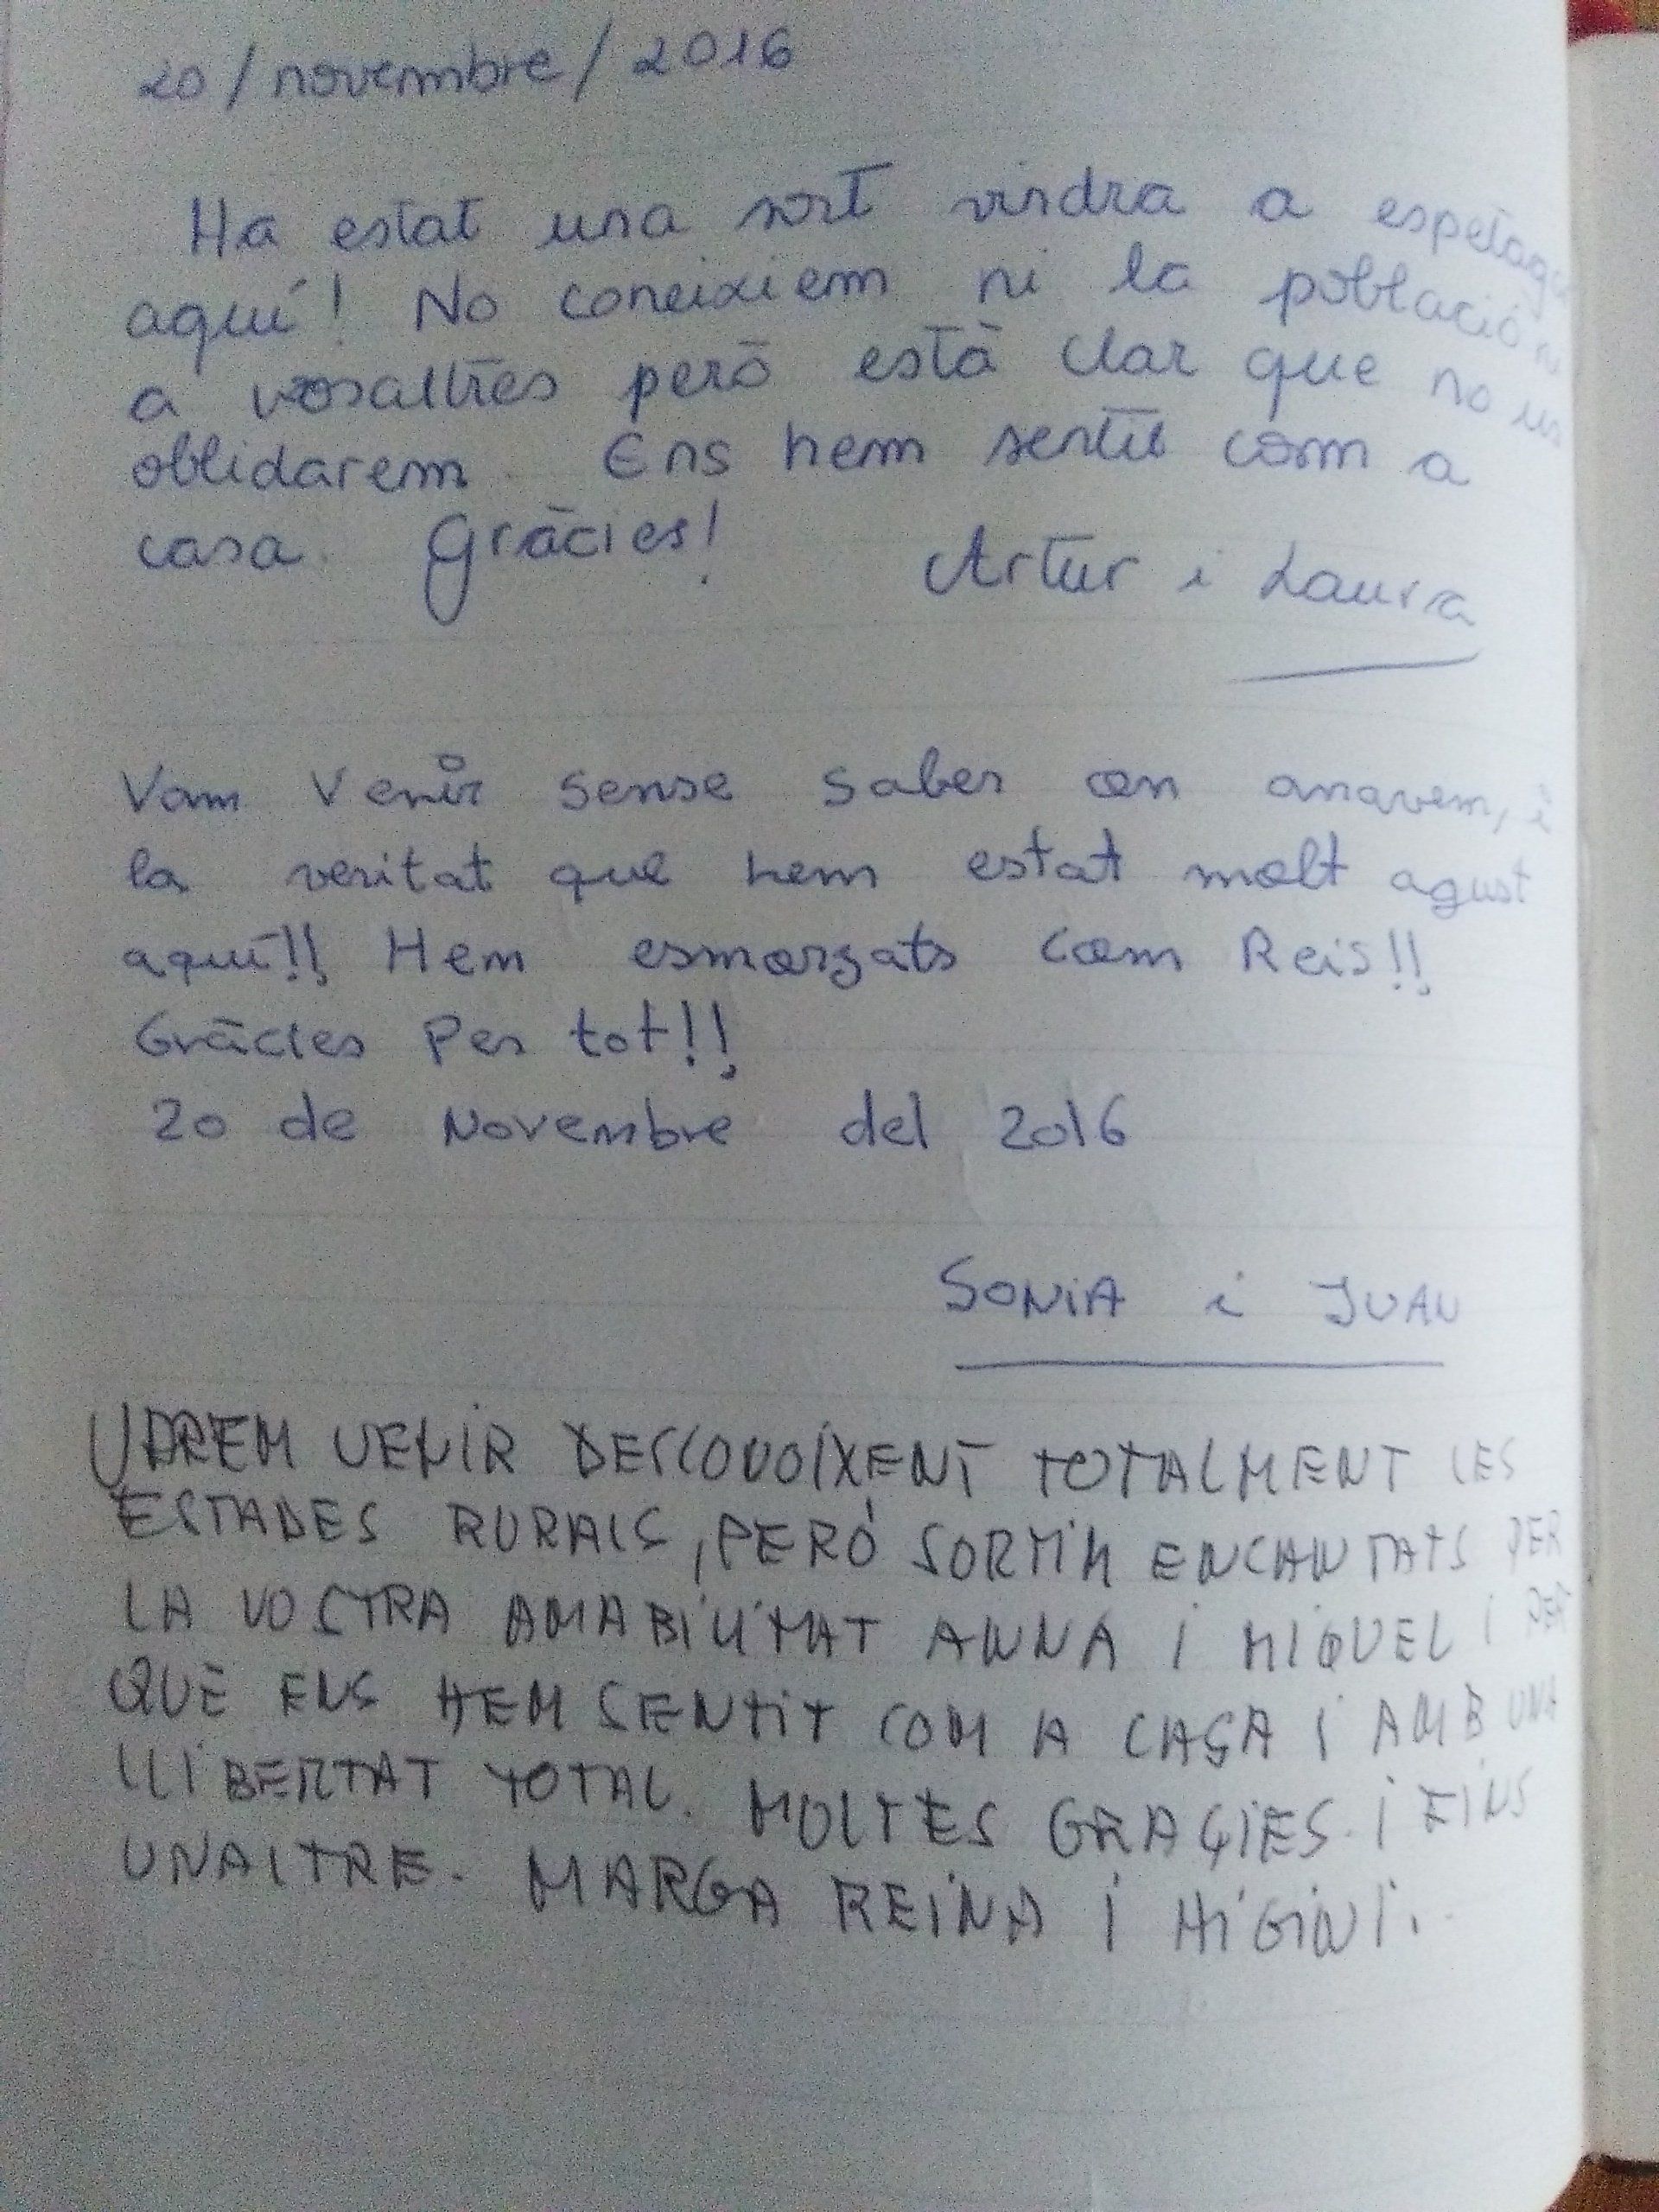 20/novembre/2016
Ha estat una sort vindra a espetaga
aquí! No coneixiem ni la població ni
a vosaltres però està clar que no us
oblidarem. Ens hem sentit com a
casa. Gràcies!
Artur i Laura
Vam Venir sense saber on anavem, i
la veritat que hem estat molt agust
aquí!! Hem esmorzats com Reis!!
Gràcies Per tot!!
20 de Novembre del 2016
SONiA i JUAN
VAREM VENiR DESCONOiXENT TOTALMENT LES
ESTADES RURALS, PERÓ SORTiM ENCANTATS PER
LA VOSTRA AMABiLiTAT ANNA i MiQUEL i PER
QUÈ ENS HEM SENTiT COM A CASA i AMB UNA
LLiBERTAT TOTAL. MOLTES GRAÇiES. i FiNS
UNALTRE. MARGA REiNA i HiGiNi.